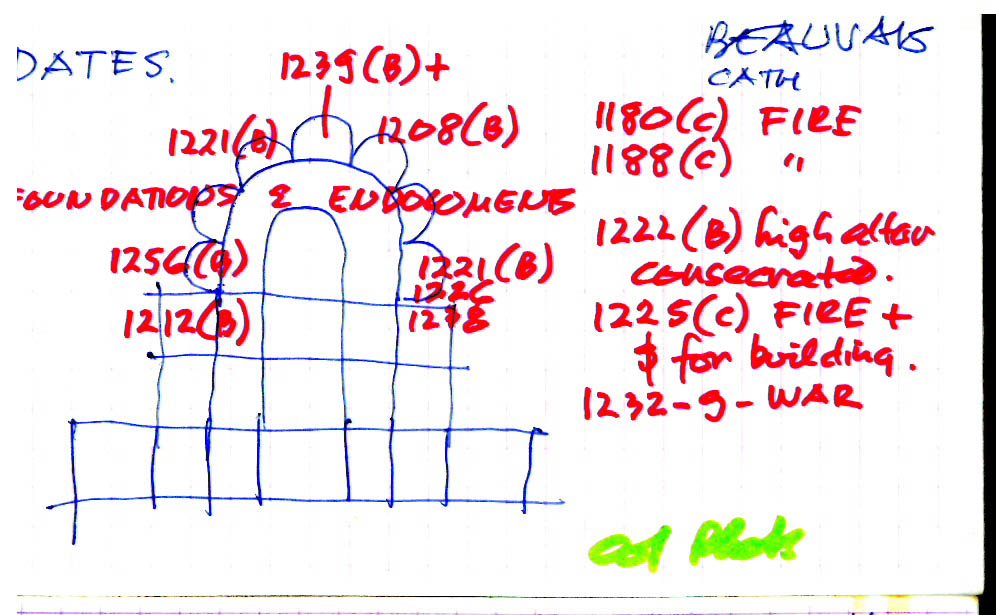 DATES.
BEAUVAIS
CATH
1239(B)+
1221(B)
1208(B)
FOUNDATIONS & ENDOWMENTS
1256(B)
1221(B)
1226
1238
1212(B)
1180(C) FIRE
1188(C) "
1222(B) high altar
consecrated.
1225(C) FIRE +
$ for building.
1232-9-WAR